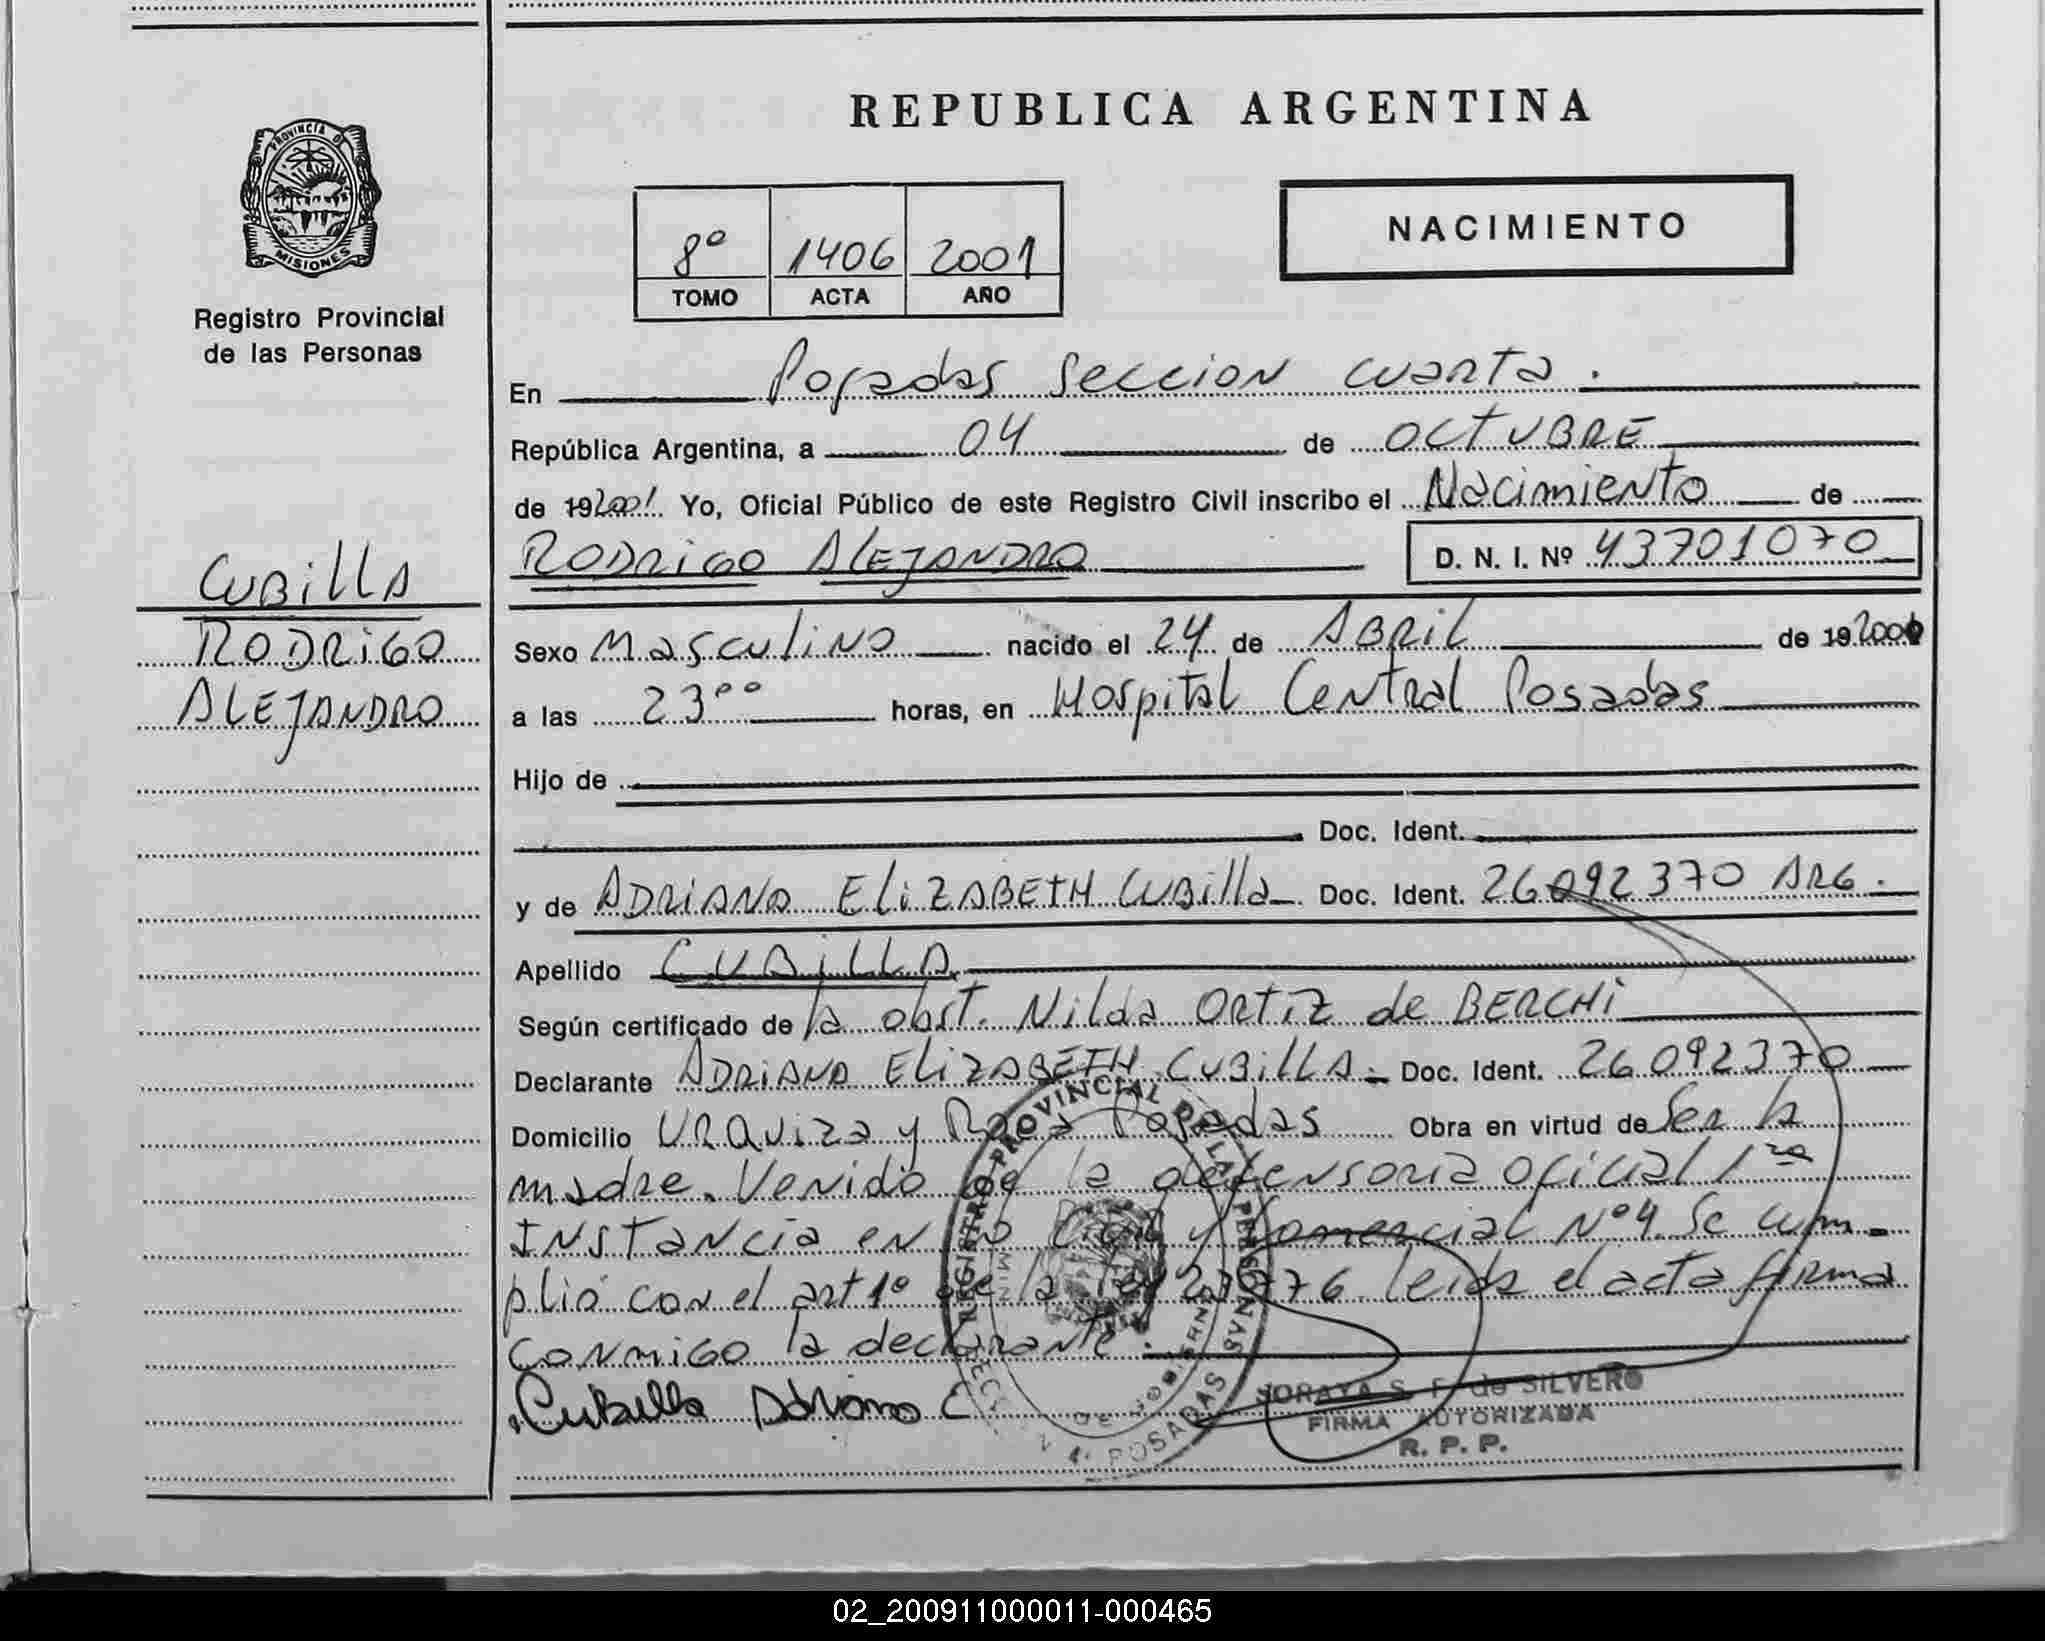 REPUBLICA ARGENTINA
PROVINCIA D
MISIONES
Registro Provincial
de las Personas
8º 1406 2001
TOMO ACTA AÑO
NACIMIENTO
En Posadas seccion cuarta.
República Argentina, a 04 de OCTUBRE
de 192001. Yo, Oficial Público de este Registro Civil inscribo el Nacimiento de
RODRIGO ALEJANDRO D. N. I. Nº 43701070
CUBILLA
RODRIGO
ALEJANDRO
Sexo Masculino nacido el 24 de ABRIL de 19
a las 23ºº horas, en Hospital Central Posadas
Hijo de
Doc. Ident.
y de ADRIANA ELIZABETH CUBILLA Doc. Ident. 26092370 ARG.
Apellido CUBILLA
Según certificado de la obst. Nilda ORTIZ de BERCHI
Declarante ADRIANA ELIZABETH CUBILLA. Doc. Ident. 26092370
Domicilio URQUIZA y Roca Posadas Obra en virtud de Ser la
madre. Venido de la defensoria oficial 1ra
INSTANCIA en lo Civil y Comercial Nº 4. Se cum-
plió con el art 1º de la ley leida el acta firma
conmigo la declarante.
Cubilla Adriana E
REGISTRO PROVINCIAL DE LAS PERSONAS
POSADAS
SORAYA S. F. de SILVERO
FIRMA AUTORIZADA
R. P. P.
02_200911000011-000465